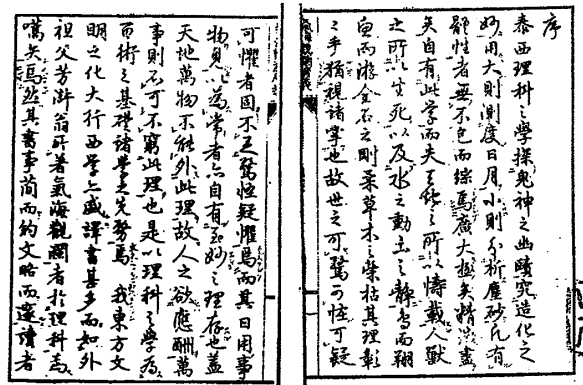 序
泰西理科之學探鬼神之幽賾究造化之
妙用大則測度日月小則分析塵砂凡有
體性者無不包而綜焉廣大極矣精深盡
矣自有此學而天地之所以幬載人獸
之所以生死以及水之動土之靜鳥而翔
魚而游金石之剛柔草木之榮枯其理彰
々乎猶視諸掌也故世之可驚可怪可疑
可懼者固不足驚怪疑懼焉而其日用事
物見以為常者亦自有至妙之理存也蓋
天地萬物不能外此理故人之欲應酬萬
事則不可不窮此理也是以理科之學為
百術之基礎諸學之先務焉 我東方文
明之化大行西學亦盛譯書甚多而如外
祖父芳滸翁所著氣海觀瀾者於理科為
嚆矢焉然其書事簡而約文略而邃讀者